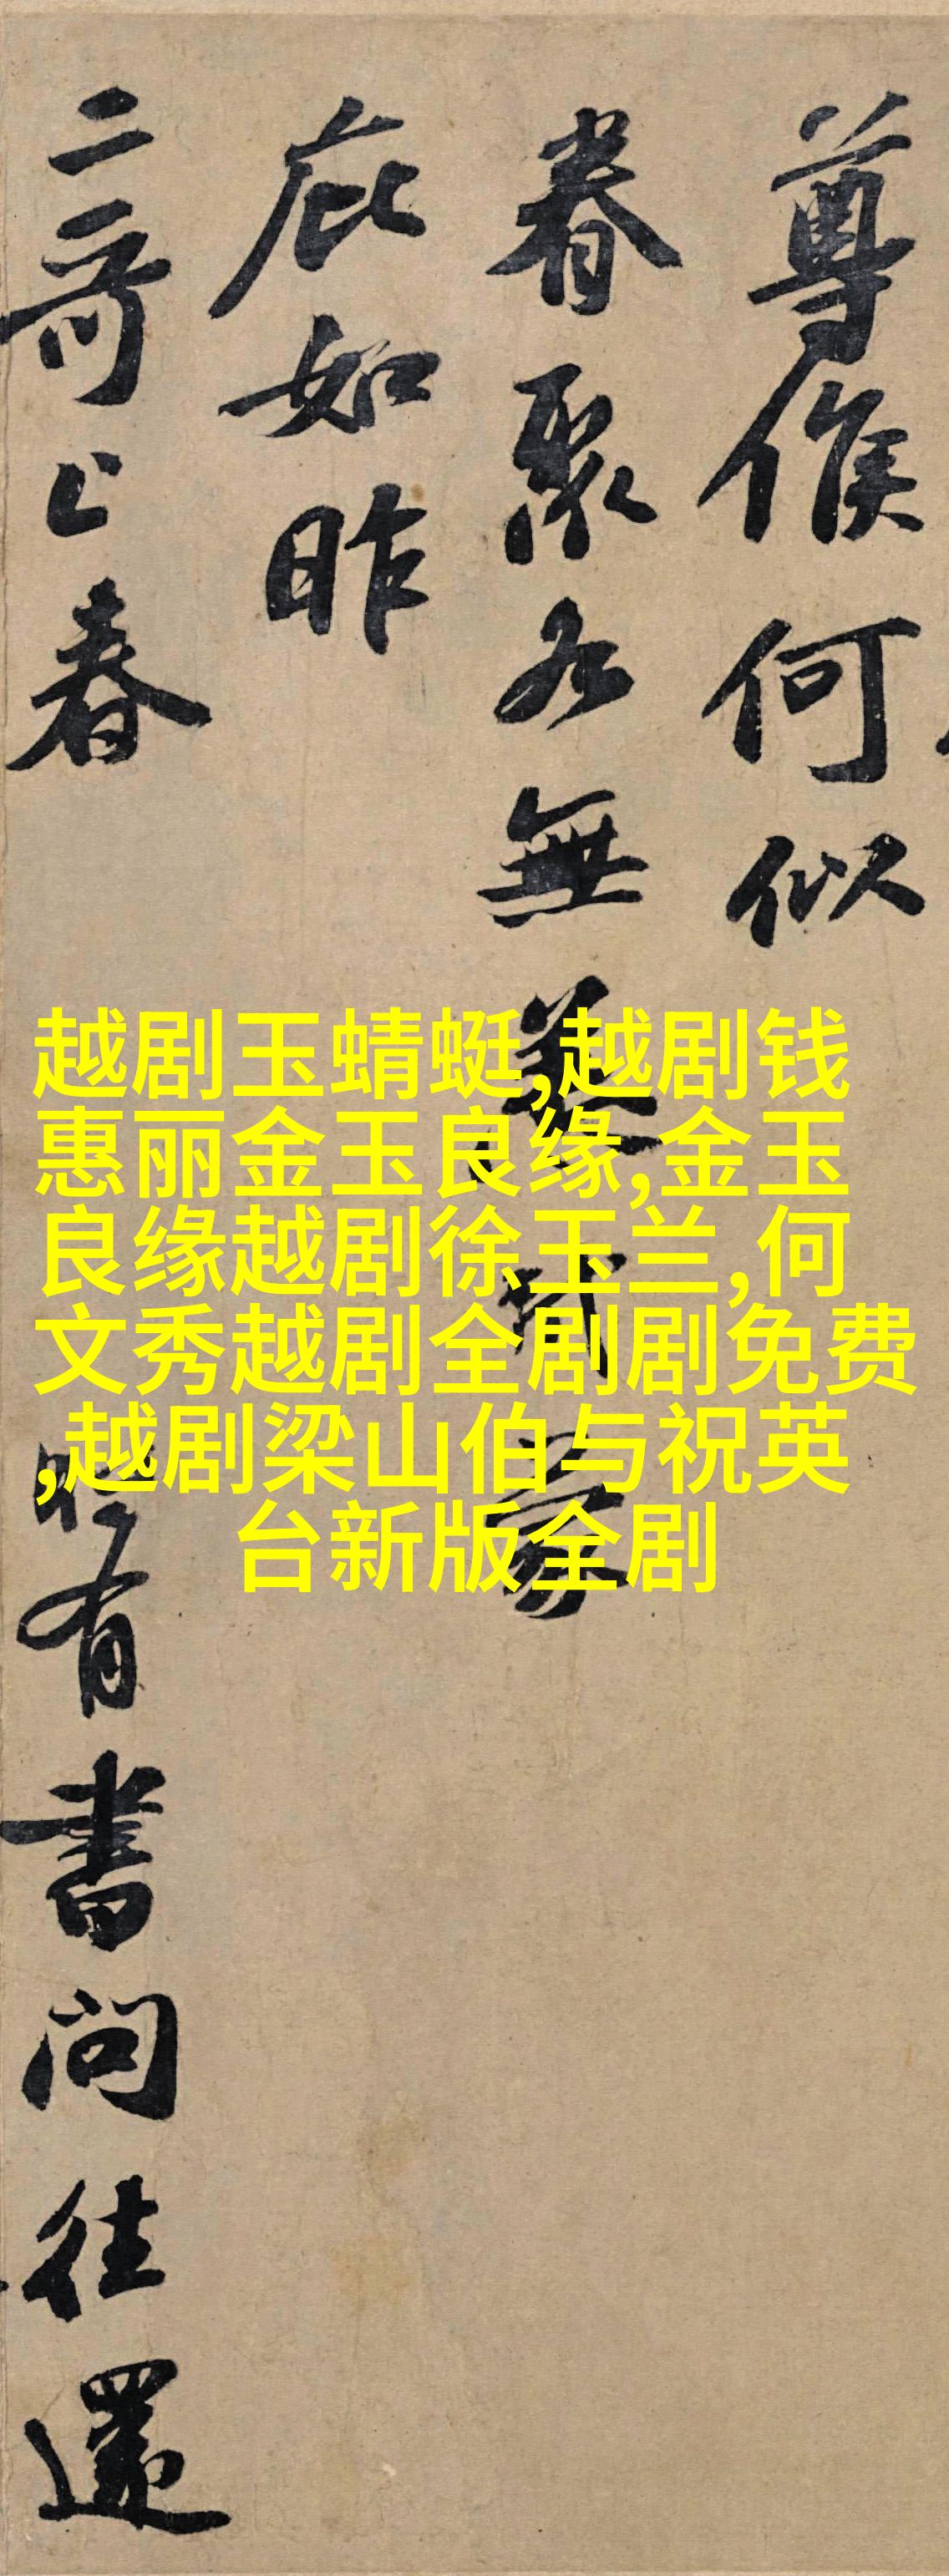 尊候何似
眷聚各無
庇如昨
二哥上春時有書問往還
越剧玉蜻蜓,越剧钱
惠丽金玉良缘,金玉
良缘越剧徐玉兰,何
文秀越剧全剧剧免费
,越剧梁山伯与祝英
台新版全剧